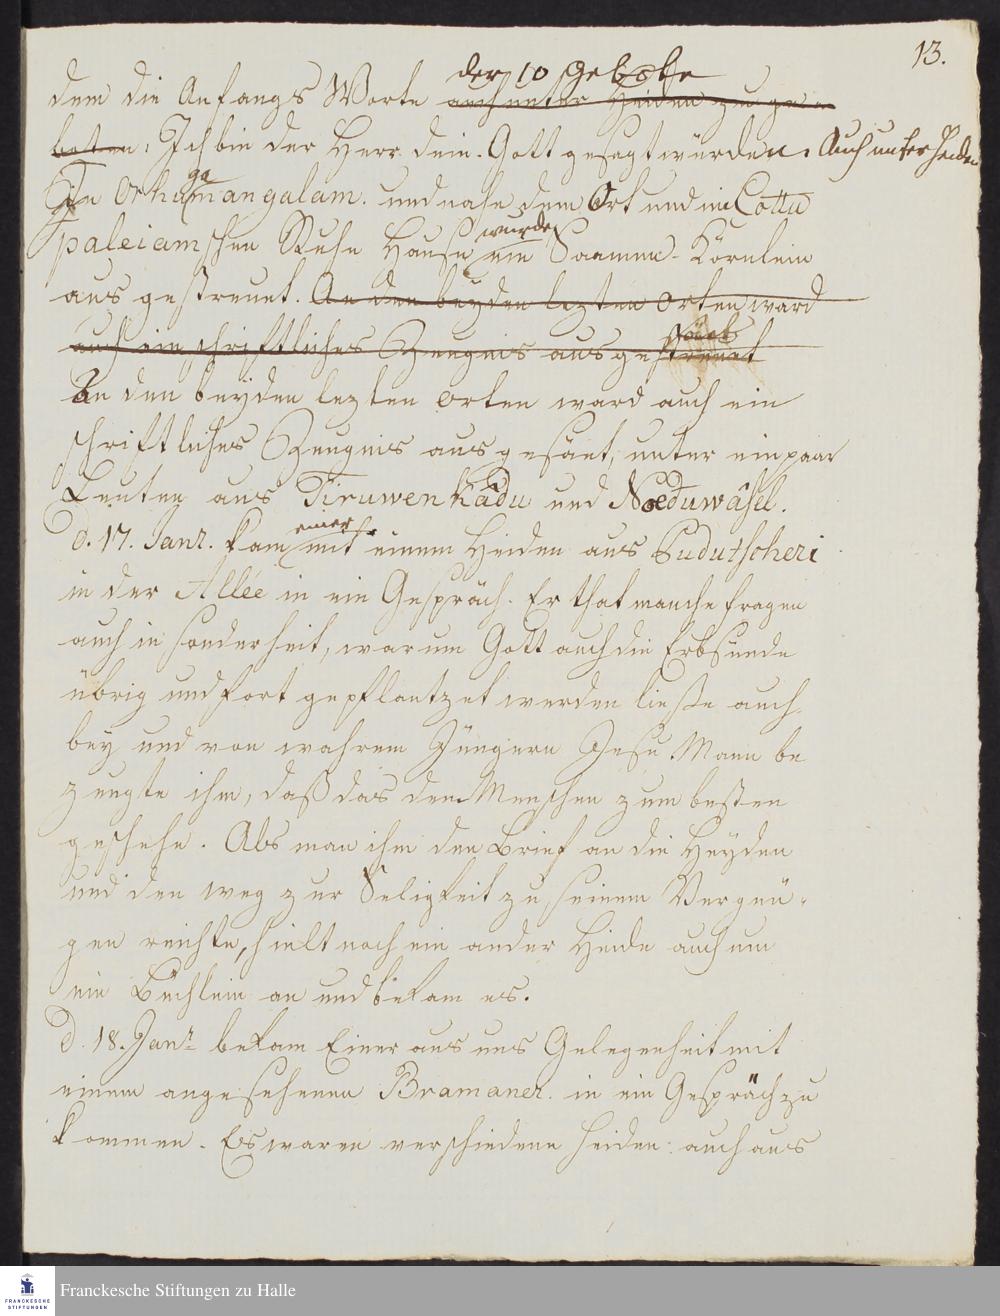 13.
der 10 Gebote
dem die Anfangs Worte auch unter Heiden zu ge-
boten: Ich bin der Herr dein Gott gesagt würden. Auch unter Heiden
In Orhugamangalam. und nahe dem Ort und im Cottu
paleiamschen Ruhe Hause wurde ein Saamen-Körnlein
ausgestreuet. An den beyden lezten Orten ward
auch ein schriftliches Zeugnis ausgestreuet
An den beyden lezten Orten ward auch ein
schriftliches Zeugnis ausgesäet, unter ein paar
Leuten aus Tiruwenkâdu und Nœduwâsel.
d. 17. Janr. kam einer mit einem Heiden aus Pudutscheri
in der Allée in ein Gespräch. Er that manche fragen
auch in sonderheit, warum Gott auch die Erbsünde
übrig und fort gepflantzet werden ließe auch
bey und von wahren Jüngern Jesu. Mann be
zeugte ihm, daß das den Menschen zum besten
geschehe. Als man ihm den Brief an die Heyden
und den weg zur Seligkeit zu seinem Vergnü-
gen reichte, hielt noch ein ander Heide auch um
ein Büchlein an und bekam es.
d. 18. Janr. bekam Einer aus uns Gelegenheit mit
einem angesehenen Bramaner. in ein Gespräch zu
kommen. Es waren verschiedene Heiden auch aus
FRANCKESCHE
STIFTUNGEN
Franckesche Stiftungen zu Halle